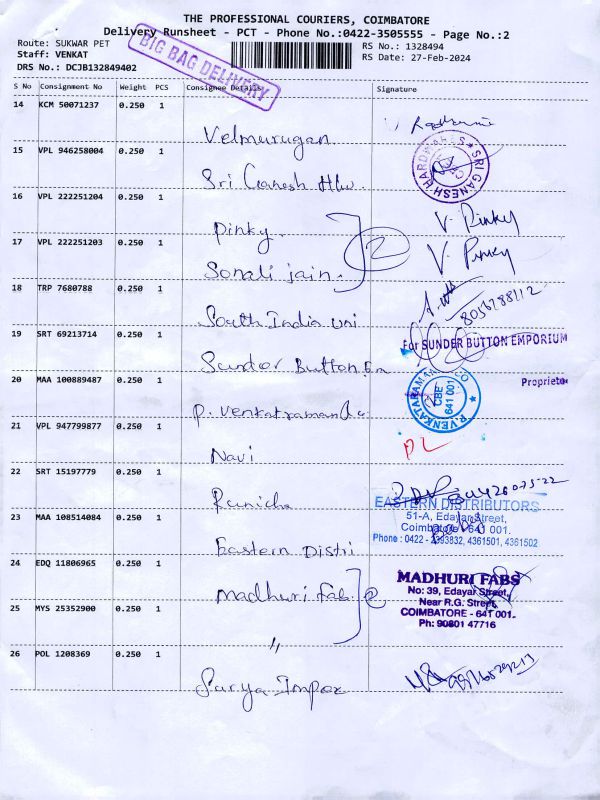 THE PROFESSIONAL COURIERS, COIMBATORE
Delivery Runsheet - PCT - Phone No.:0422-3505555 - Page No.:2
Route: SUKWAR PET
RS No.: 1328494
Staff: VENKAT
RS Date: 27-Feb-2024
DRS No.: DCJB132849402
BIG BAG DELIVERY
S No Consignment No Weight PCS Consignee Details Signature
14 KCM 50071237 0.250 1
Velmurugan
15 VPL 946258004 0.250 1
Sri Ganesh Hw
SRI GANESH HARDWARES
16 VPL 222251204 0.250 1
Pinky
V. Pinky
17 VPL 222251203 0.250 1
Sonali jain
2
V. Pinky
18 TRP 7680788 0.250 1
South India Uni
19 SRT 69213714 0.250 1
Sundar Button Em
For SUNDER BUTTON EMPORIUM
Proprietor
20 MAA 100889487 0.250 1
P. Venkatraman & Co
P.VENKATARAMAN & CO
CBE
641 001
21 VPL 947799877 0.250 1
Navi
22 SRT 15197779 0.250 1
23 MAA 108514084 0.250 1
Eastern Distri
EASTERN DISTRIBUTORS
51-A, Edayar Street,
Coimbatore - 641 001.
Phone : 0422 - 2393832, 4361501, 4361502
24 EDQ 11806965 0.250 1
Madhuri Fab. 2
MADHURI FABS
No: 39, Edayar Street,
Near R.G. Street,
COIMBATORE - 641 001.
Ph: 90801 47716
25 MYS 25352900 0.250 1
"
26 POL 1208369 0.250 1
Surya Impex